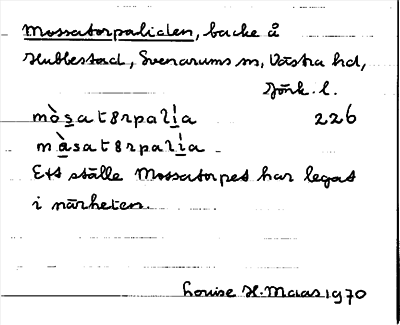 Mossatorpaliden, backe å
Hubbestad, Svenarums sn, Västra hd,
Jönk. l.
mòsatɘrpalía 226
màsatɘrpalía
Ett ställe Mossatorpet har legat
i närheten.
Louise H. Maas 1970